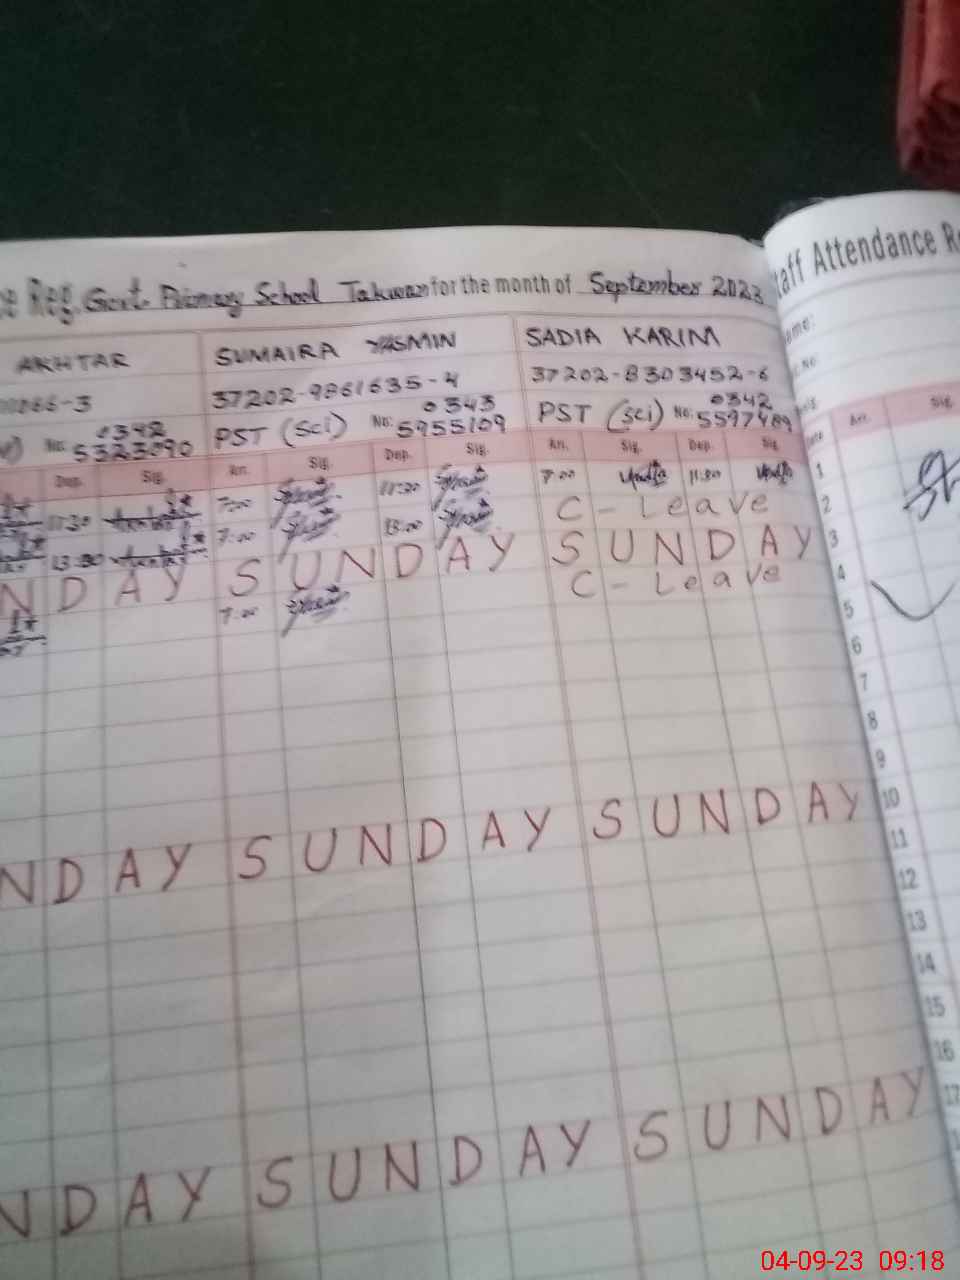 ce Reg. Govt. Primary School Takwan for the month of September 2023
AKHTAR SUMAIRA YASMIN SADIA KARIM
866-3 37202-9861635-4 37202-8303452-6
No: 0342 5323090 PST (Sci) No: 0343 5955109 PST (sci) No: 0342 5597489
Dep. Sig. Arr. Sig. Dep. Sig. Arr. Sig. Dep. Sig.
11:30 7:00 11:30 7:00 11:30
13:00 7:00 13:00 C - Leave
NDAY SUNDAY SUNDAY
7:00 C - Leave
NDAY SUNDAY SUNDAY
NDAY SUNDAY SUNDAY
taff Attendance Re
ame:
Arr. Sig.
1
2
3
4
5
6
7
8
9
10
11
12
13
14
15
16
17
04-09-23 09:18